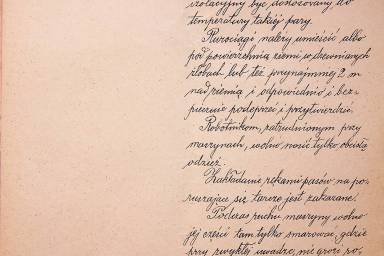 izolacyjny być dostosowany do
temperatury takiej pary.
Rurociągi należy umieścić albo
pod powierzchnią ziemi w drewnianych
żłobach lub też przynajmniej 2 m
nad ziemią i odpowiednio i bez-
piecznie podeprzeć i przytwierdzić.
Robotnikom, zatrudnionym przy
maszynach, wolno nosić tylko obcisłą
odzież.
Zakładanie rękami pasów na po-
ruszające się tarcze jest zakazane.
Podczas ruchu maszyny wolno
jej części tam tylko smarować, gdzie
przy zwykłej uwadze, nie grozi po-